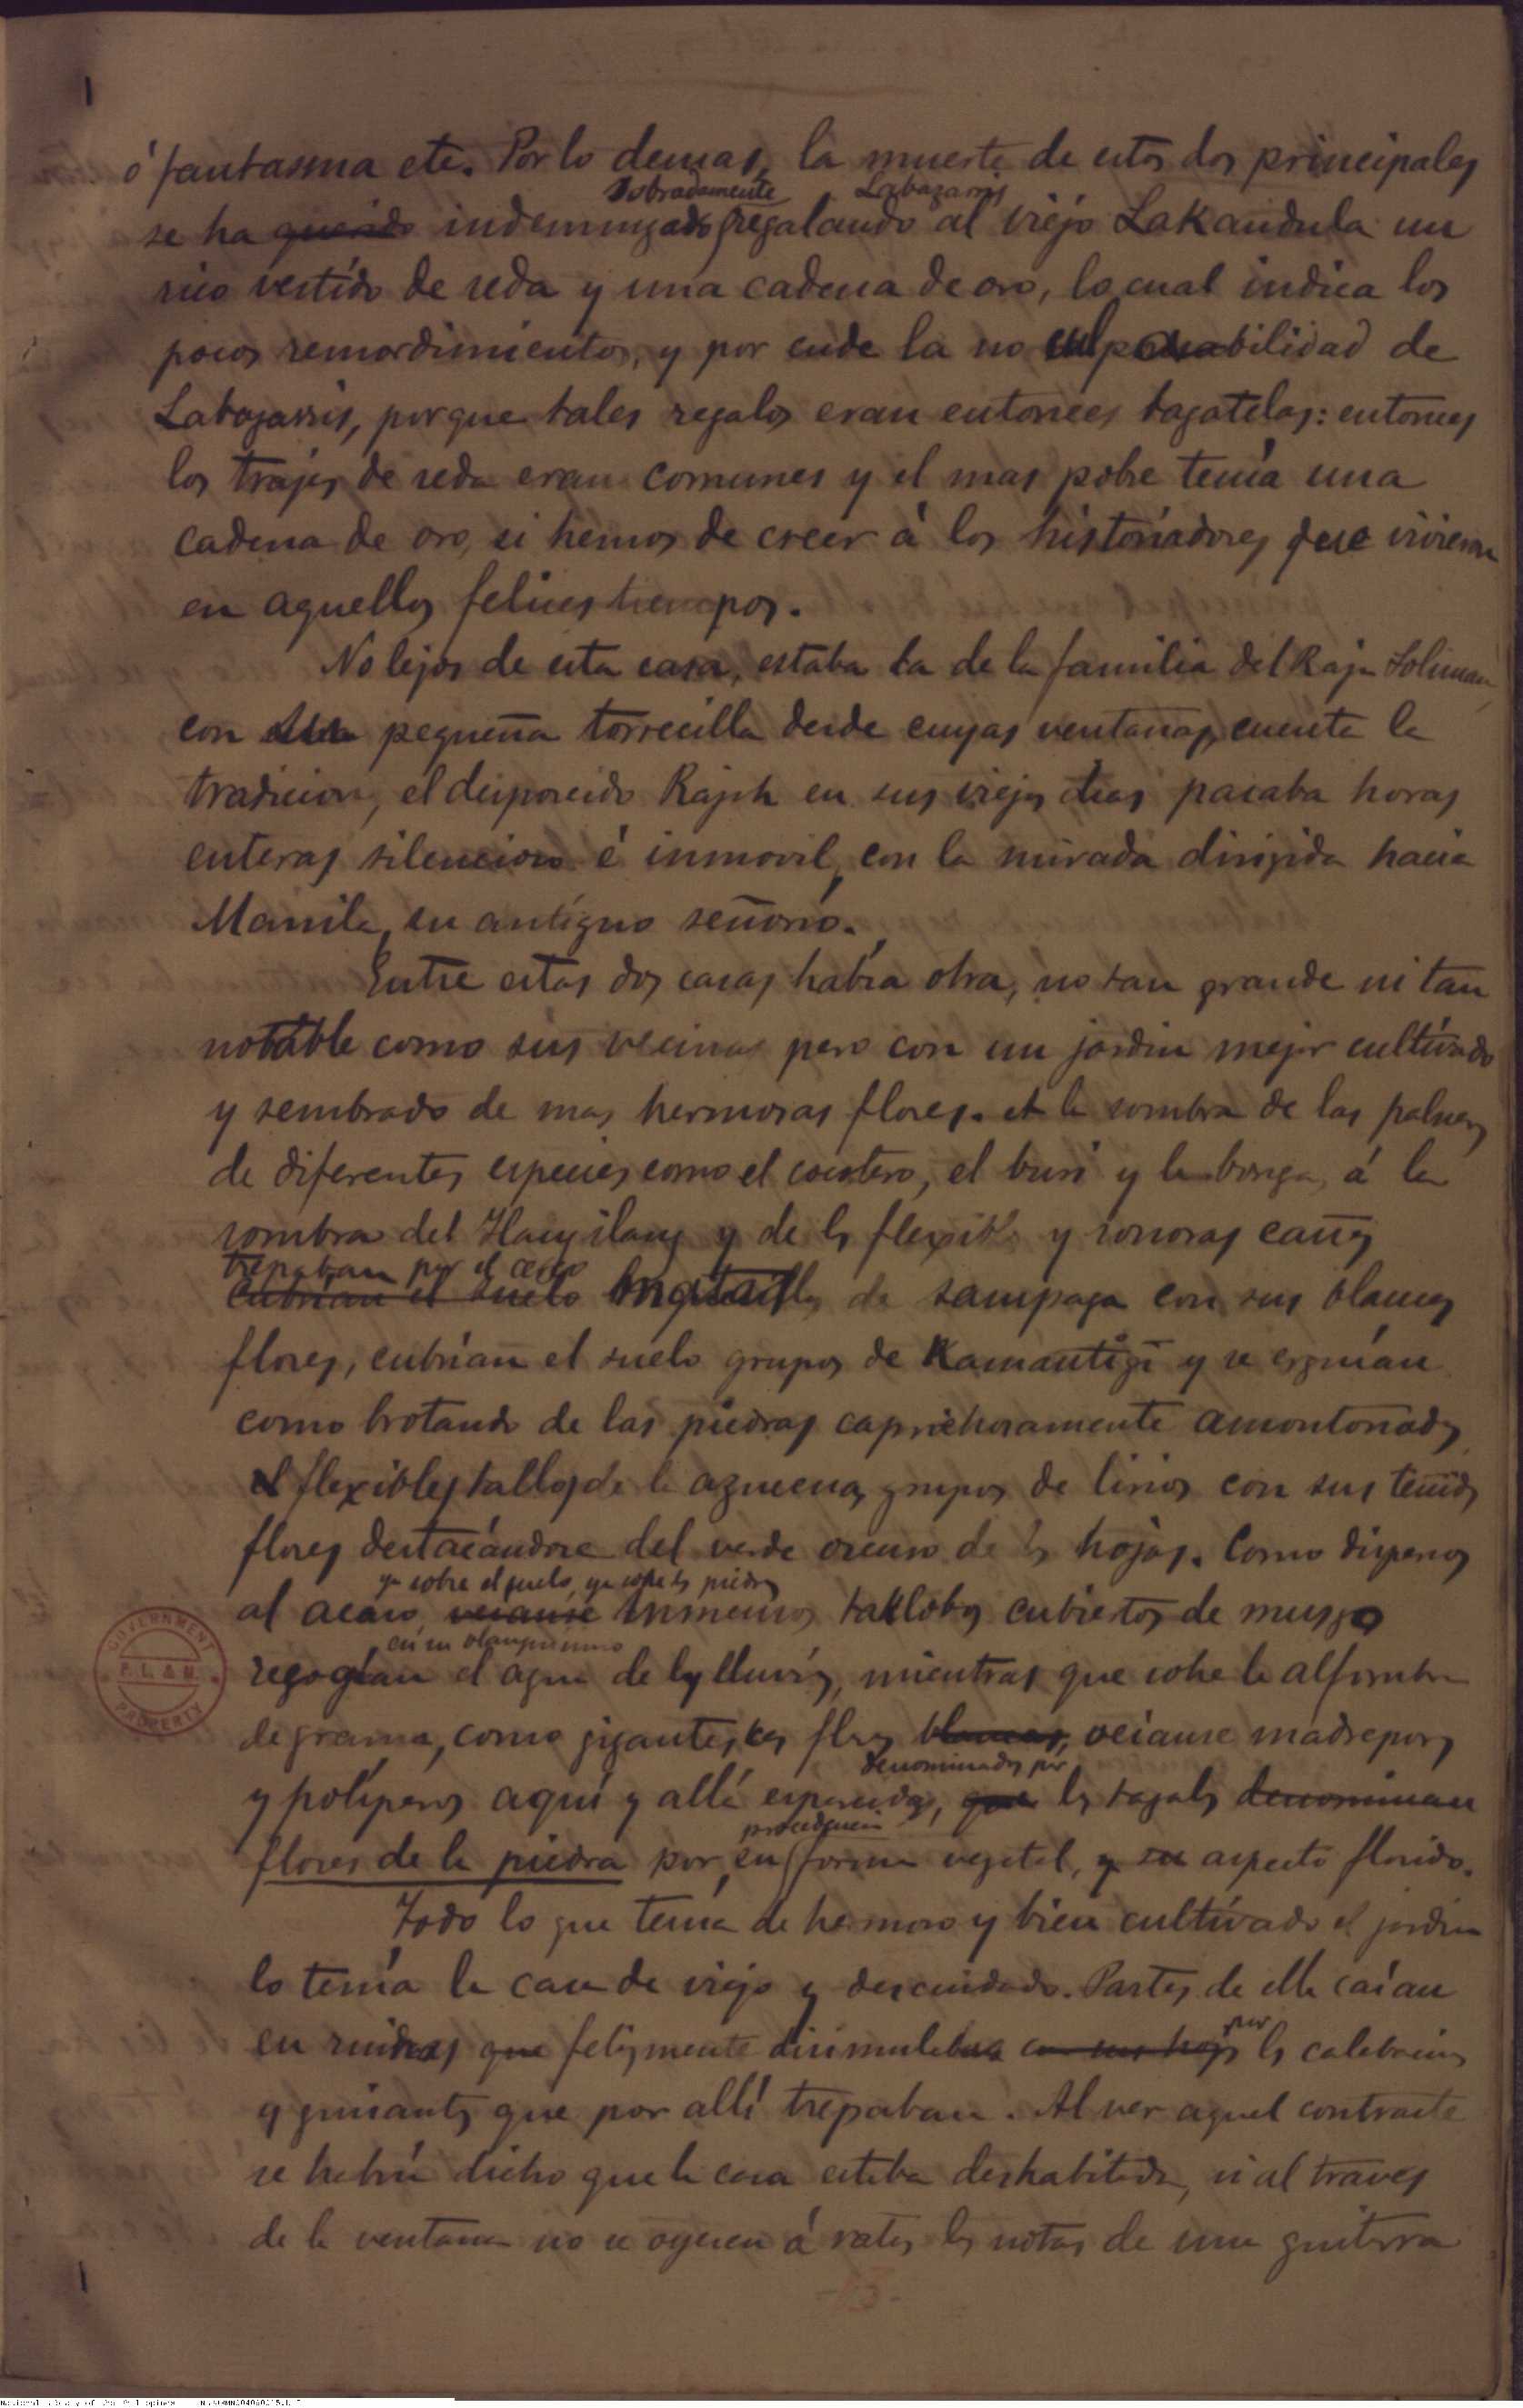 ó fantasma etc. Por lo demas, la muerte de estos dos principales
sobradamente Labazarris
se ha querido indemnizado regalando al viejo Lakandula un
rico vestído de seda y una cadena de oro, lo cual indica los
pocos remordimientos, y por ende la no culpabilidad de
Labazarris, porque tales regalos eran entonces bagatelas: entonces
los trajes de seda eran comunes y el mas pobre tenía una
cadena de oro, si hemos de creer á los historiadores que vivieron
en aquellos felices tiempos.
No lejos de esta casa, estaba la de la familia del Raja Soliman,
con su pequeña torrecilla desde cuyas ventanas, cuenta la
tradicion, el desposeido Rajah en sus viejos dias pasaba horas
enteras silencioso é inmovil, con la mirada dirigida hacia
Manila, su antíguo señorío.
Entre estas dos casas había otra, no tan grande ni tan
notable como sus vecinas pero con un jardin mejor cultívado
y sembrado de mas hermosas flores. A la sombra de las palmas
de diferentes especies como el cocotero, el buri y la bonga, á la
sombra del Ilang ilang y de las flexibles y sonoras cañas
trepaban por el cerco
cubrían el suelo de sampaga con sus blancas
flores, cubrían el suelo grupos de Kamantigi y se erguían
como brotando de las piedras caprichosamente amontonadas
flexibles tallos de la azucena, grupos de lirios con sus teñidas
flores destacándose del verde oscuro de las hojas. Como dispersos
ya sobre el suelo, ya sobre las piedras
al acaso, veianse inmensos taklobos cubiertos de musgo
en su blanquisimo
recogían el agua de las lluvias, mientras que sobre la alfombra
de grama, como gigantescas flores blancas, veíanse madreporas
denominados por
y políperos aquí y allí esparcidos, que los tagalos denominan
procedencia
flores de la piedra por su forma vegetal, y su aspecto florido.
Todo lo que tenía de hermoso y bien cultívado el jardin
lo tenía la casa de viejo y descuidado. Partes de ella caían
por
en ruinas que felizmente disimulaban con sus hojas las calabacinas
y guisantes que por allí trepaban. Al ver aquel contraste
se habría dicho que la casa estaba deshabitada, si al traves
de la ventana no se oyesen á ratos las notas de una guitarra
GOVERNMENT
P. L. & M.
PROPERTY